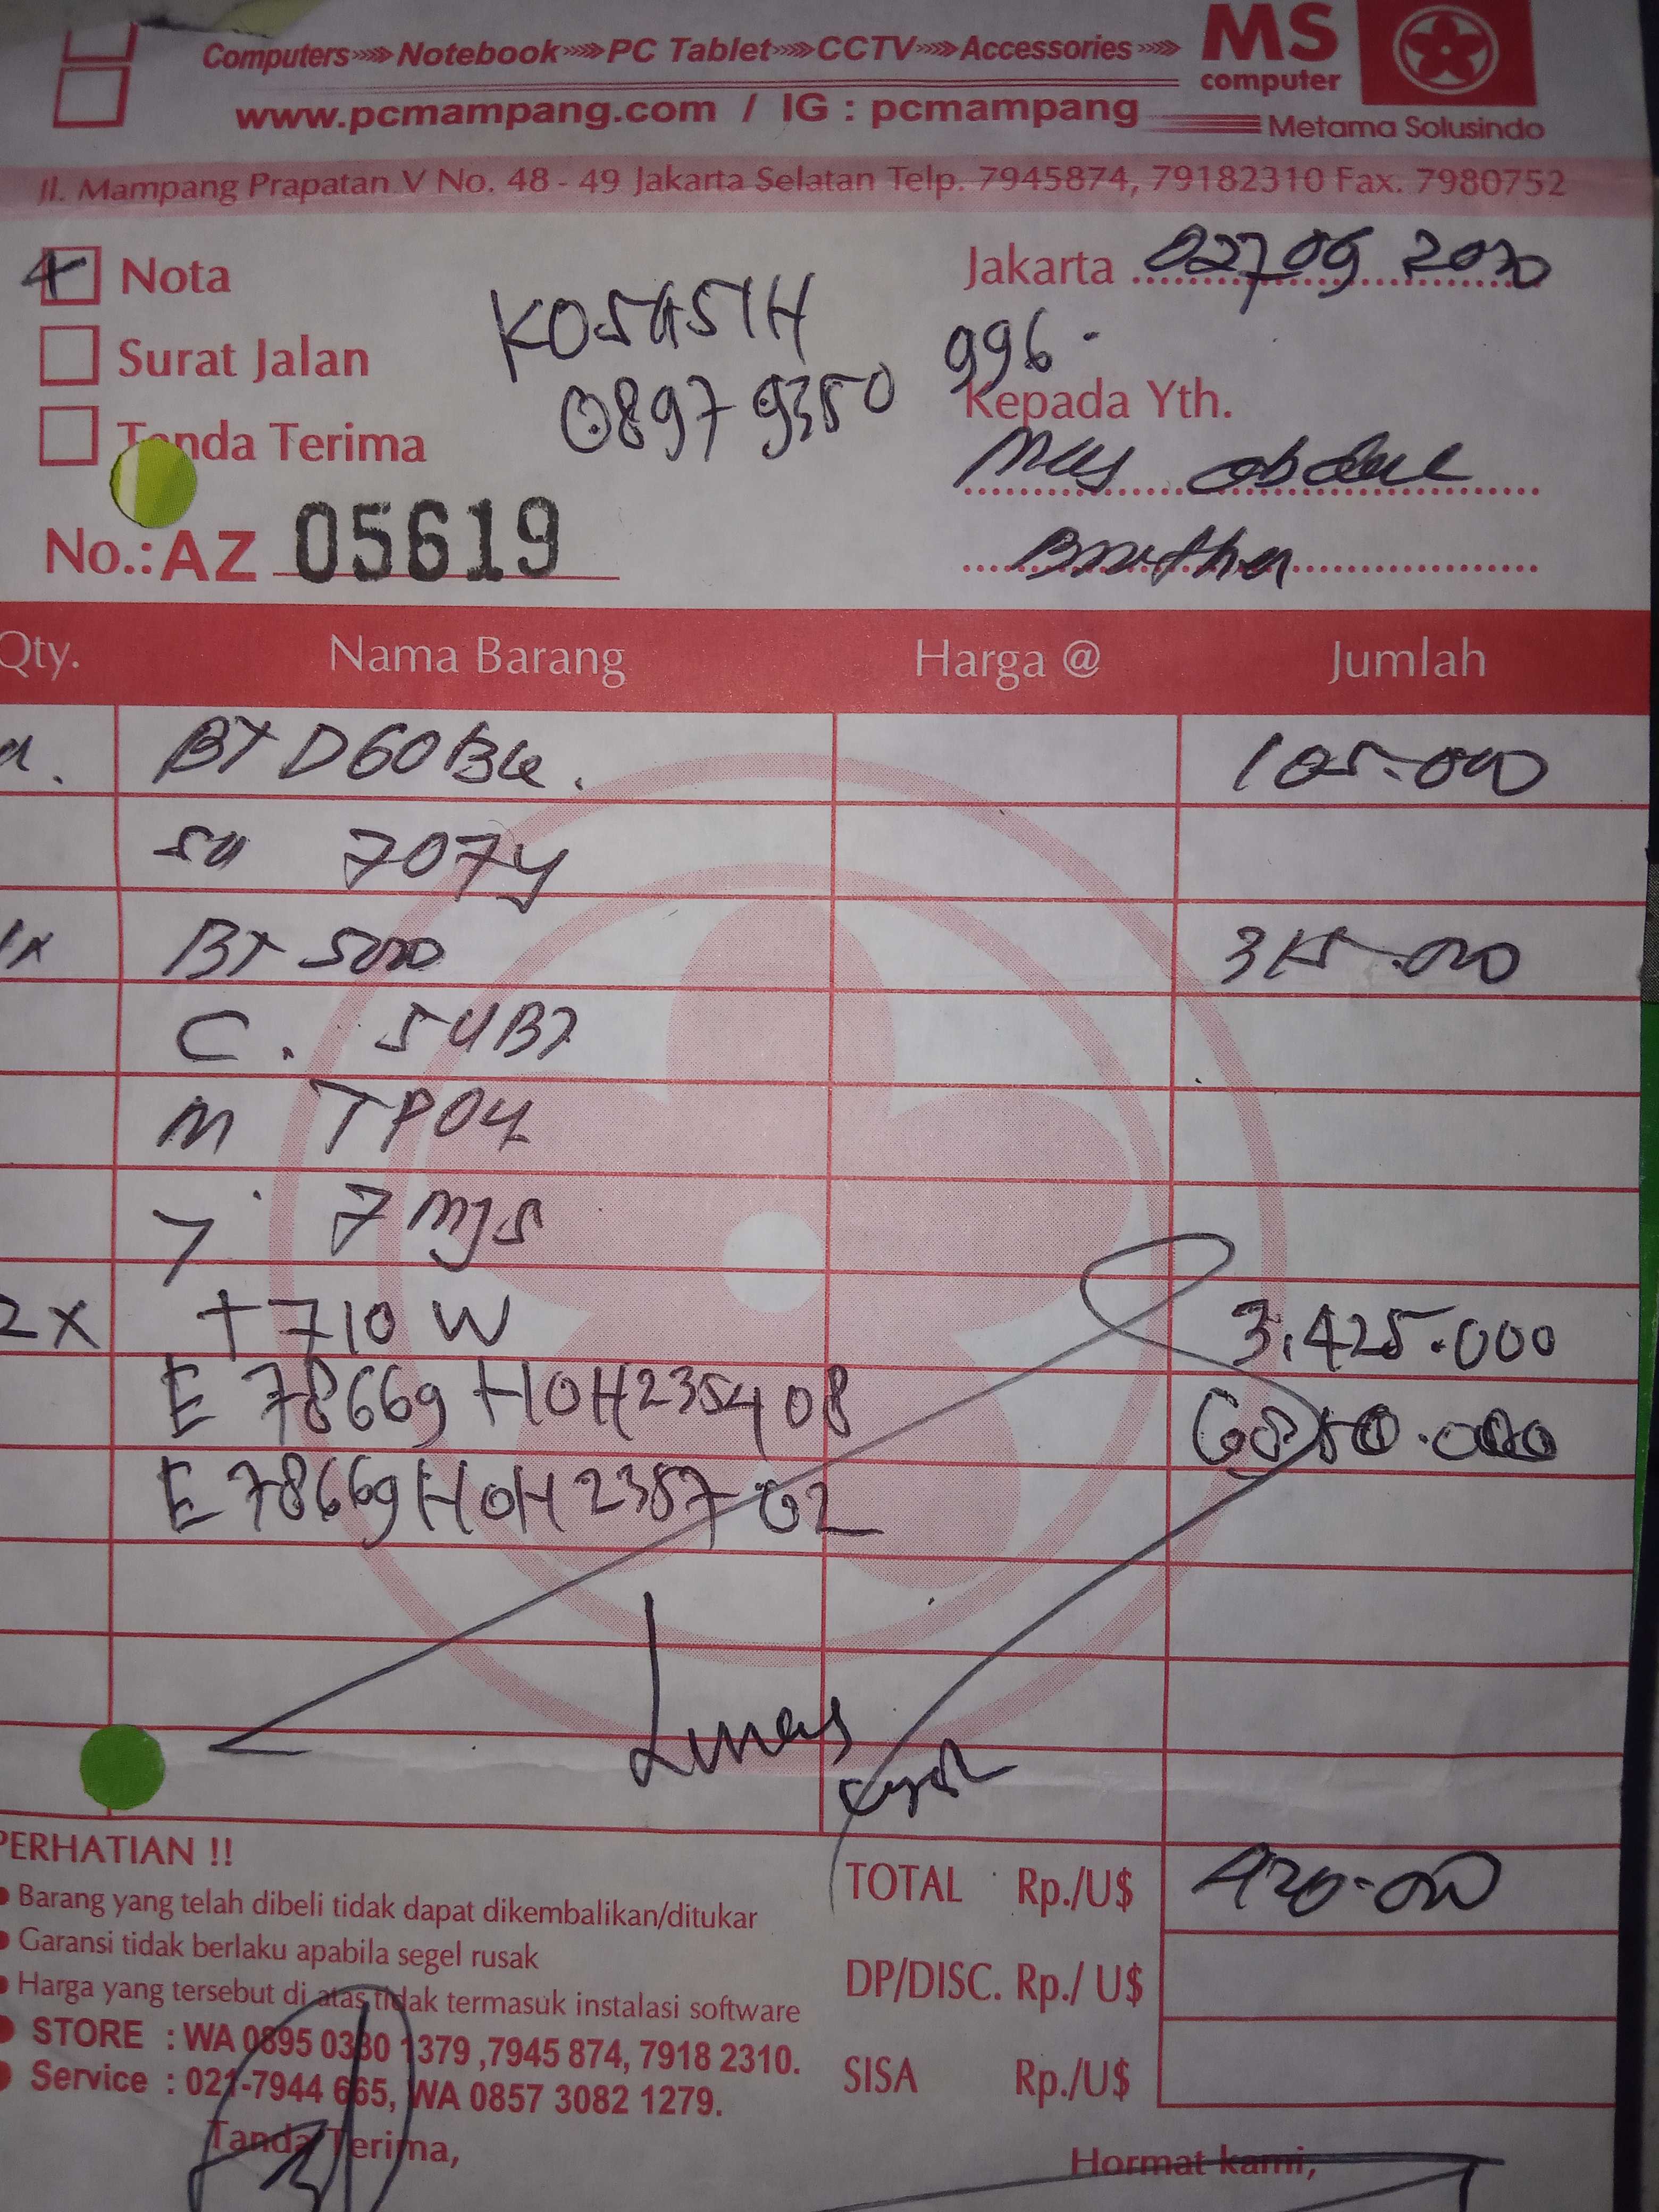 Computers Notebook PC Tablet CCTV Accessories
MS
computer
www.pcmampang.com / IG : pcmampang
Metama Solusindo
Jl. Mampang Prapatan V No. 48 - 49 Jakarta Selatan Telp. 7945874, 79182310 Fax. 7980752
Nota
Jakarta
Surat Jalan
KOSASIH
0897 9350 996
Kepada Yth.
Tanda Terima
Mas abdul
No.: AZ 05619
Qty. Nama Barang Harga @ Jumlah
BT D60BK. 105.000
707Y
1x BT 5000 315.000
C.
M TP04
Y
2x T710 W 3.425.000
E 78669 HOH235408 6850.000
E 78669 HOH2387 02
Lunas
PERHATIAN !!
Barang yang telah dibeli tidak dapat dikembalikan/ditukar
Garansi tidak berlaku apabila segel rusak
Harga yang tersebut di atas tidak termasuk instalasi software
STORE : WA 0895 0330 1379 ,7945 874, 7918 2310.
Service : 021-7944 665, WA 0857 3082 1279.
TOTAL Rp./U$ 420.000
DP/DISC. Rp./ U$
SISA Rp./U$
Tanda Terima,
Hormat kami,